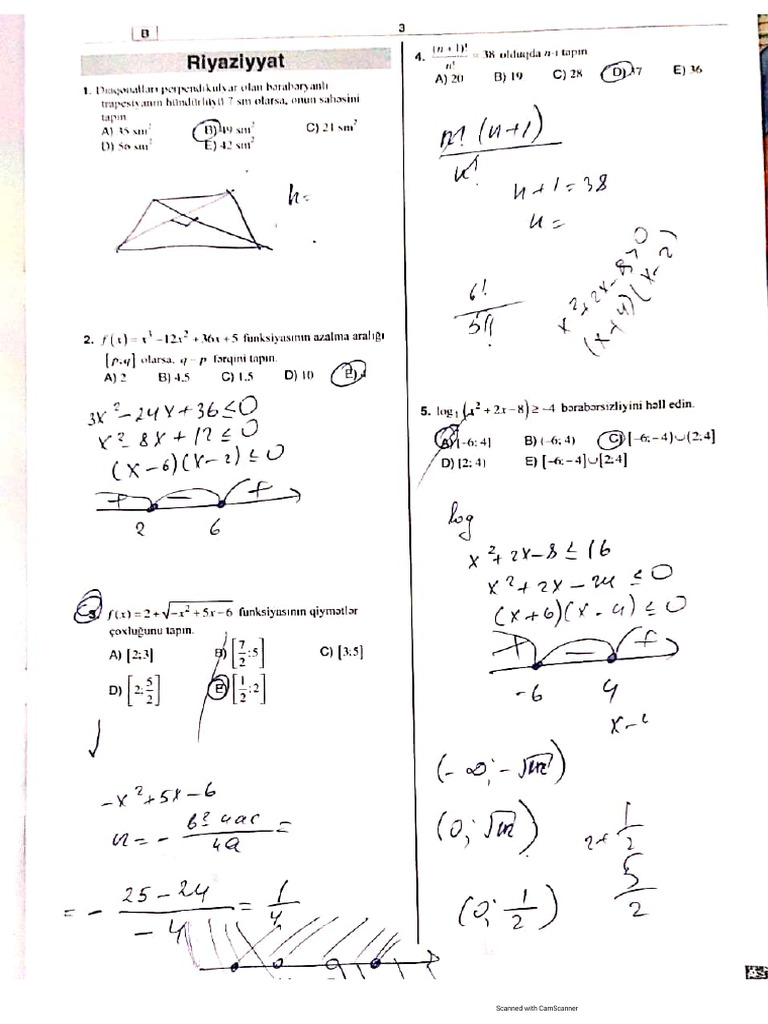 B
3
Riyaziyyat
1. Diaqonalları perpendikulyar olan bərabəryanlı
trapesiyanın hündürlüyü 7 sm olarsa, onun sahəsini
tapın
A) 35 sm² B) 49 sm² C) 21 sm²
D) 56 sm² E) 42 sm²
h=
2. f(x) = x³ −12x² +36x + 5 funksiyasının azalma aralığı
[p;q] olarsa, q − p fərqini tapın.
A) 2 B) 4,5 C) 1,5 D) 10 E) 4
3x² − 24x + 36 ≤ 0
x² − 8x + 12 ≤ 0
(x−6)(x−2) ≤ 0
+ − +
2 6
3. f(x) = 2 + √(−x² + 5x − 6) funksiyasının qiymətlər
çoxluğunu tapın.
A) [2;3] B) [7/2;5] C) [3;5]
D) [2;5/2] E) [1/2;2]
−x² + 5x − 6
n = − b² 4ac / 4a =
= − 25 − 24 / −4 = 1/4
4. (n+1)!/n! = 38 olduqda n-i tapın
A) 20 B) 19 C) 28 D) 37 E) 36
n! (n+1)
n!
n+1 = 38
n =
6!
5!
x² + 2x − 8 > 0
(x+4)(x−2)
5. log₁ (x² + 2x − 8) ≥ −4 bərabərsizliyini həll edin.
A) [-6; 4] B) (-6; 4) C) [-6;-4)∪(2;4]
D) [2; 4) E) [-6;-4]∪[2;4]
log
x² + 2x − 8 ≤ 16
x² + 2x − 24 ≤ 0
(x+6)(x−4) ≤ 0
+ − +
-6 4
(−∞; −√m)
(0; √m)
2+ 1/2
(0; 1/2)
5/2
Scanned with CamScanner